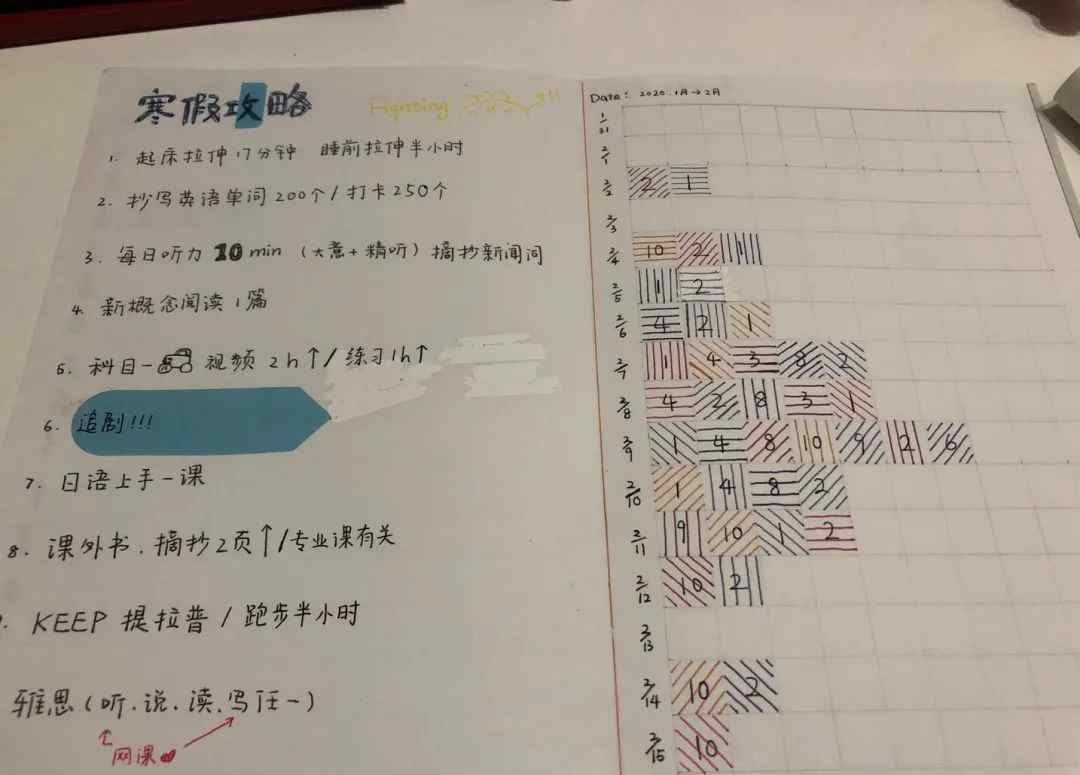 寒假攻略 Fighting
1. 起床拉伸17分钟 睡前拉伸半小时
2. 抄写英语单词200个/打卡250个
3. 每日听力 20 min (大意+精听) 摘抄新闻词
4. 新概念阅读1篇
5. 科目一 视频 2h↑/练习1h↑
6. 追剧!!!
7. 日语上手一课
8. 课外书.摘抄2页↑/专业课有关
KEEP 提拉普/跑步半小时
雅思(听.说.读.写任一)
网课
Date: 2020.1月→2月
1/31
2/1
2/2 2 1
2/3
2/4 10 2 1
2/5 1 2
2/6 4 2 1
2/7 1 4 3 8 2
2/8 4 2 8 3 1
2/9 1 4 8 10 9 2 6
2/10 1 4 8 2
2/11 9 10 1 2
2/12 10 2
2/13
2/14 10 2
2/15 10